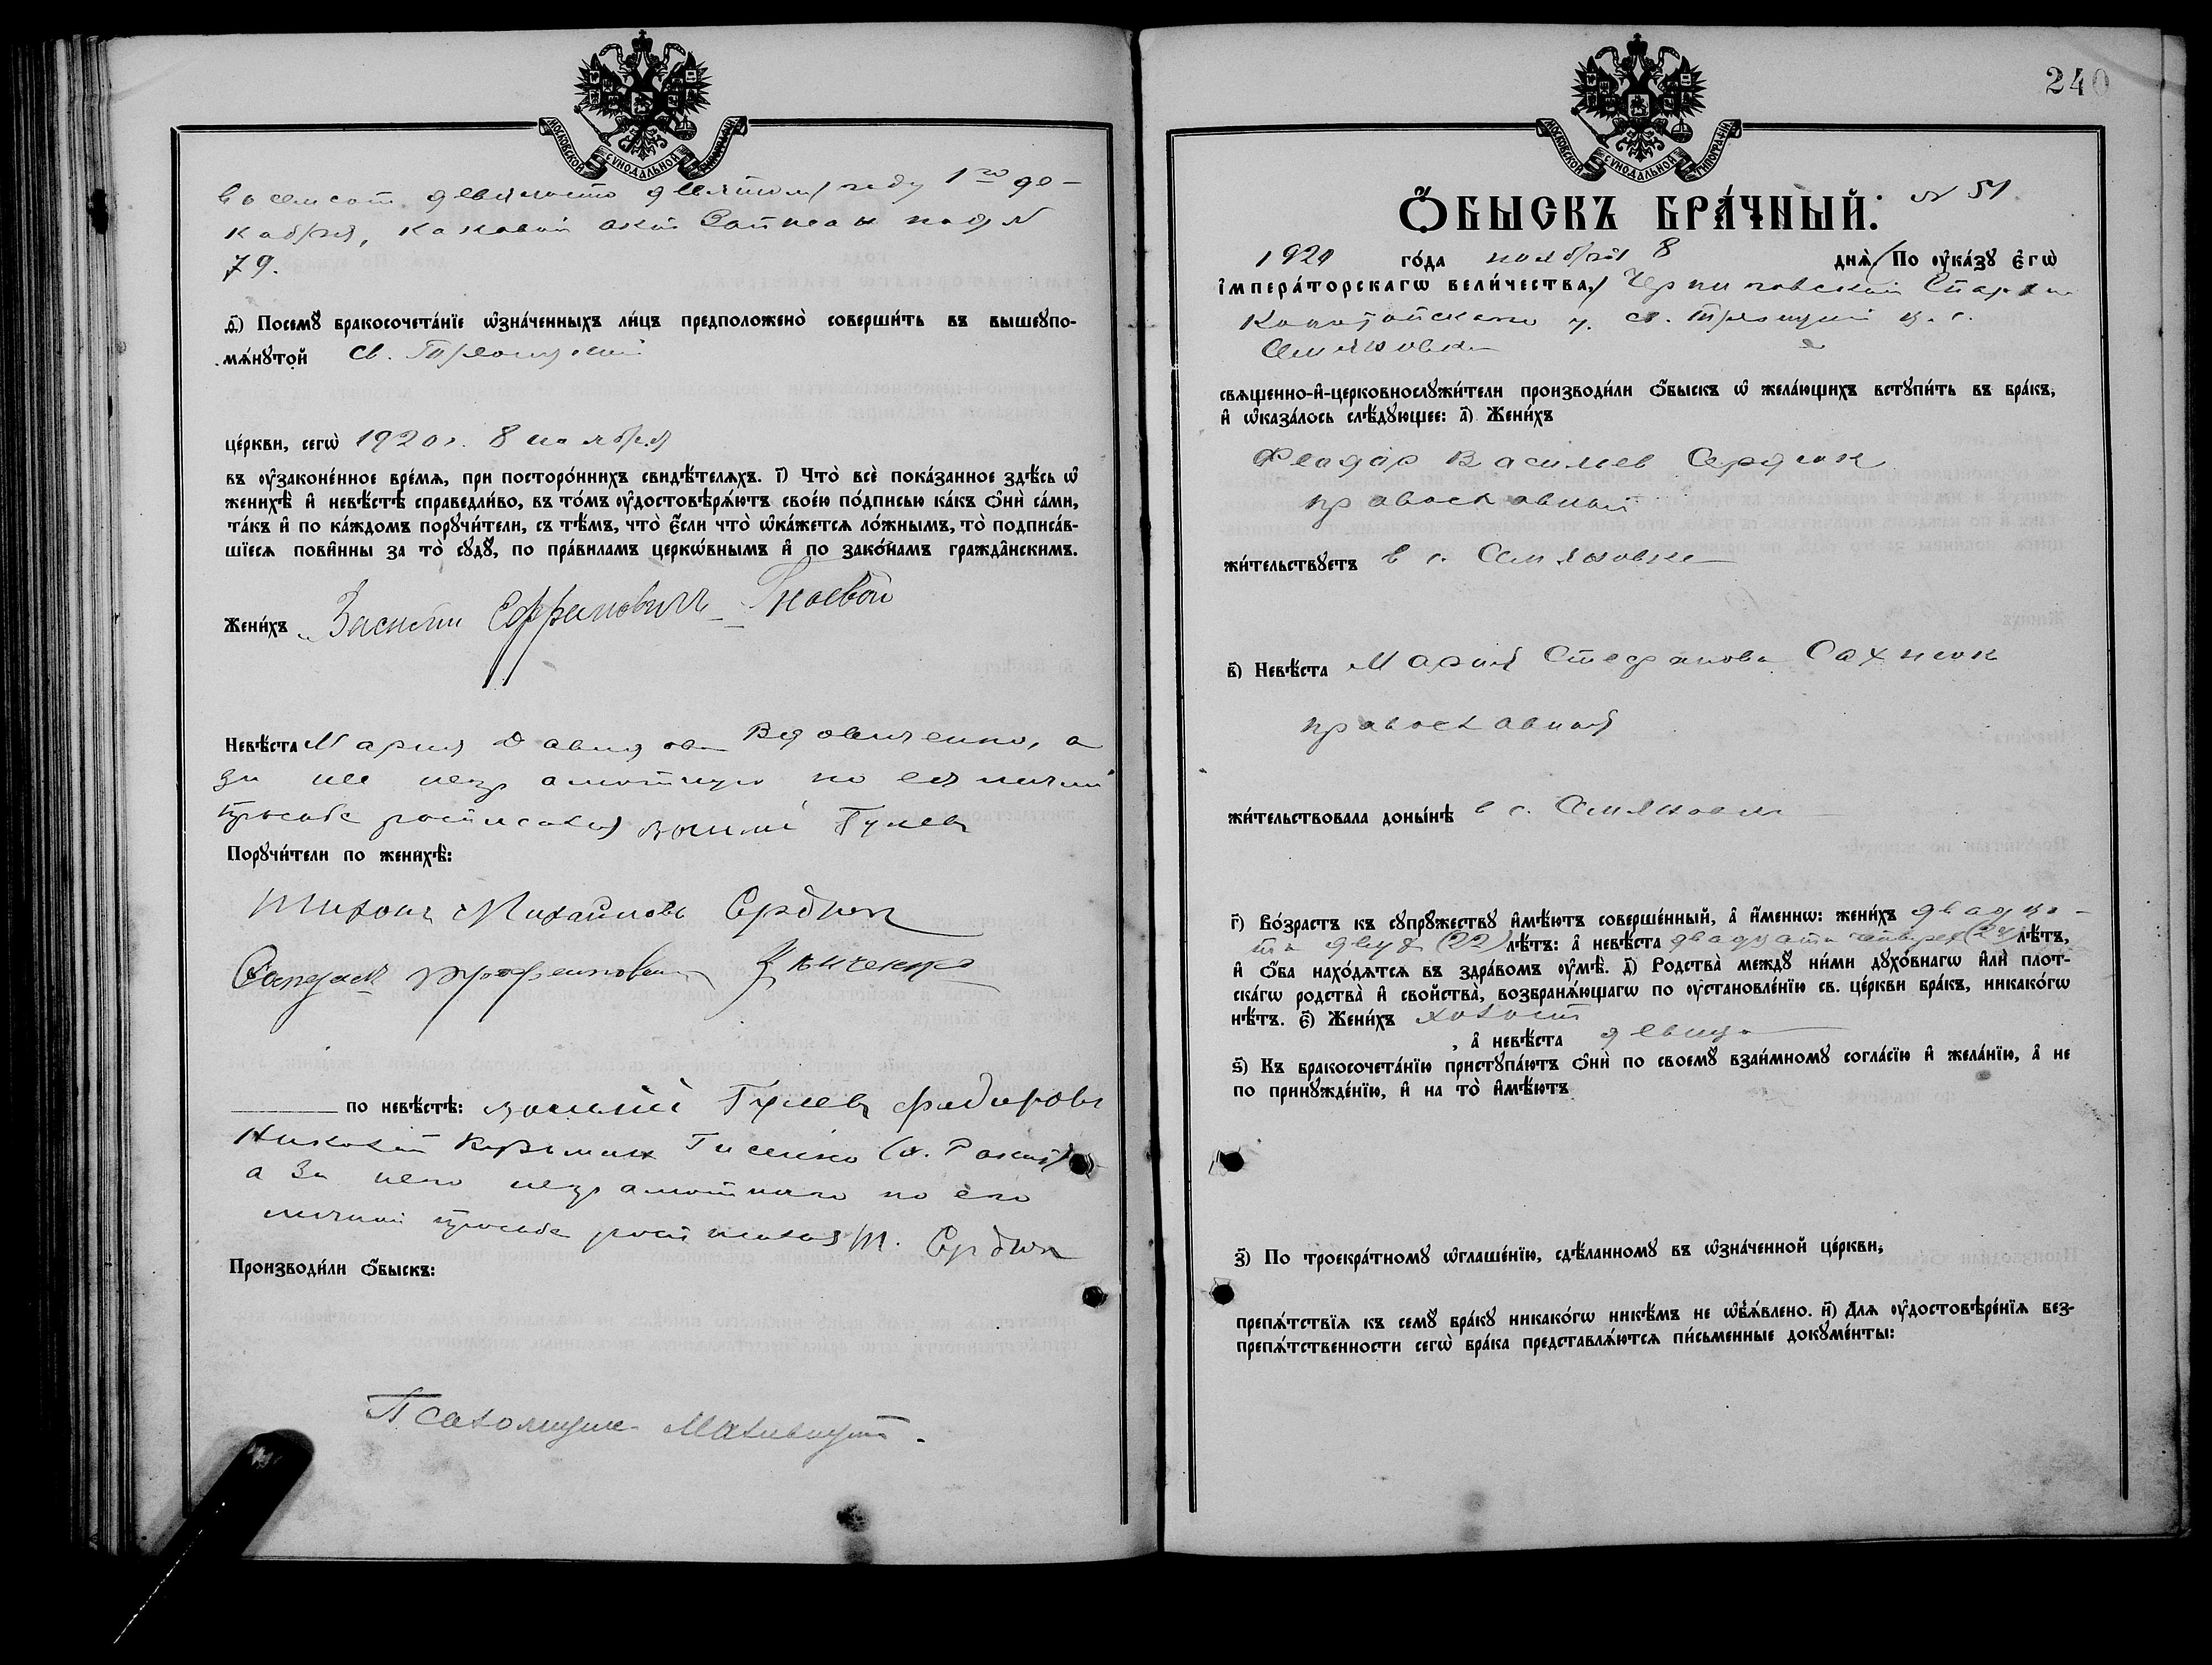 МОСКОВСКОЙ СѴНОДАЛЬНОЙ ТИПОГРАФІИ
восемсот девяносто девятом году 1го де-
кабря, каковой акт записан под №
79.
д҃) Посемꙋ̀ бракосочета́нїе ѡ҆зна́ченныхъ ли́цъ предположено̀ соверши́ть въ вышеꙋпо-
мѧ́нꙋтой св. Троицкой
це́ркви, сегѡ̀ 1920 г. 8 ноября
въ ᲂу҆законе́нное вре́мѧ, при посторо́ннихъ свидѣ́телѧхъ. і҃) Что̀ всѐ пока́занное здѣ́сь ѡ҆
женихѣ̀ и҆ невѣ́стѣ справедли́во, въ то́мъ ᲂу҆достовѣрѧ́ютъ свое́ю по́дписью ка́къ ѻ҆нѝ са́ми,
та́къ и҆ по ка́ждомъ порꙋчи́тели, съ тѣ́мъ, что̀ є҆́сли что̀ ѡ҆ка́жетсѧ ло́жнымъ, то̀ подписа́в-
шїесѧ пови́нны за то̀ сꙋдꙋ̀, по пра́виламъ церкѡ́внымъ и҆ по зако́намъ гражда́нскимъ.
Жени́хъ Ефимович Гноевой
Невѣ́ста Мария Давидова Вдовиченко, а
за нее неграмотную по ея личной
просьбе росписался Гулев
Порꙋчи́тели по женихѣ̀:
Тихон Михайловъ Сердюк
по невѣ́стѣ: Гулев
Николай Кузьмин
а за него неграмотного по его
личной просьбе росписался Т. Сердюк
Производи́ли ѻ҆́быскъ:
Псаломщик
240
МОСКОВСКОЙ СѴНОДАЛЬНОЙ ТИПОГРАФІИ
Ѻ҆́БЫСКЪ БРА́ЧНЫЙ. № 51
1920 го́да ноября 8 днѧ̀. (По ᲂу҆ка́зꙋ є҆гѡ̀
і҆мпера́торскагѡ вели́чества,) Черниговской Епархии
Конотопского у. св. Троицкой ц. с.
Семяновки
свѧще́нно-и҆-церковнослꙋжи́тели производи́ли ѻ҆́быскъ ѡ҆ жела́ющихъ встꙋпи́ть въ бра́къ,
и҆ ѡ҆каза́лось слѣ́дꙋющее: а҃) Жени́хъ
Феодор Васильев Сердюк
православный
жи́тельствꙋетъ в с. Семяновке
в҃) Невѣ́ста Мария Стефанова Сахнюк
православная
жи́тельствовала доны́нѣ в с. Семяновке
г҃) Во́зрастъ къ сꙋпрꙋ́жествꙋ и҆мѣ́ютъ соверше́нный, а҆ и҆́меннѡ: жени́хъ двадца-
ти двух (22) лѣ́тъ: а҆ невѣ́ста двадцати четырех (24) лѣ́тъ,
и҆ ѻ҆́ба нахо́дѧтсѧ въ здра́вомъ ᲂу҆мѣ̀. д҃) Родства̀ междꙋ ни́ми дꙋхо́внагѡ и҆лѝ плот-
ска́гѡ родства̀ и҆ сво́йства, возбранѧ́ющагѡ по ᲂу҆становле́нїю св. це́ркви бра́къ, никако́гѡ
нѣ́тъ. є҃) Жени́хъ холост
, а҆ невѣ́ста девица
ѕ҃) Къ бракосочета́нїю пристꙋпа́ютъ ѻ҆нѝ по своемꙋ̀ взаи́мномꙋ согла́сїю и҆ жела́нїю, а҆ не
по принꙋжде́нїю, и҆ на то̀ и҆мѣ́ютъ
з҃) По троекра́тномꙋ ѡ҆глаше́нїю, сдѣ́ланномꙋ въ ѡ҆зна́ченной це́ркви,
препѧ́тствїѧ къ семꙋ̀ бра́кꙋ никако́гѡ никѣ́мъ не ѡ҆б̾ѧ́влено. и҃) Для ᲂу҆достовѣре́нїѧ без-
препѧ́тственности сегѡ̀ бра́ка представлѧ́ютсѧ пи́сьменные докꙋме́нты: